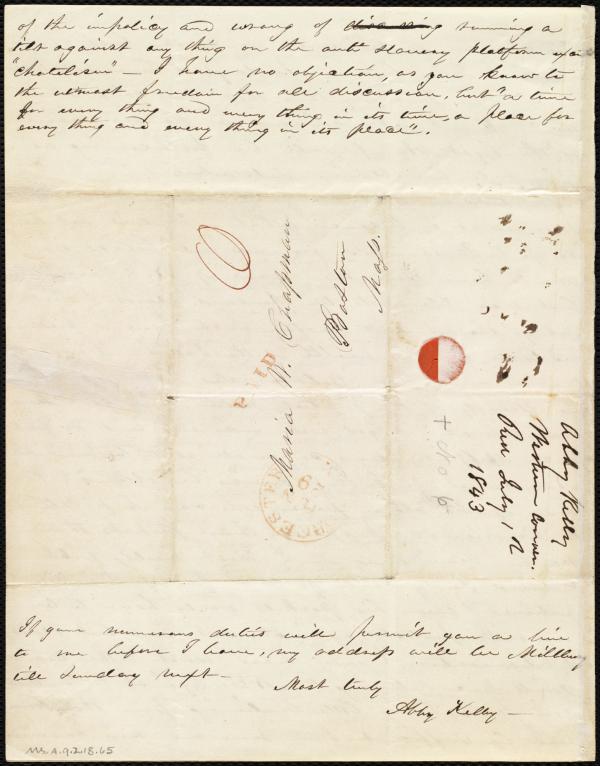 of the impolicy and wrong of running a
tilt against any thing on the anti slavery platform
"chatelism" — I have no objection, as you know to
the utmost freedom for all discussion, but "a time
for every thing and every thing in its time, a place for
every thing and every thing in its place".
6
PAID
Maria W. Chapman
Boston
Mass.
Abby Kelly
Western conven.
July 1843
+ No 6
If your numerous duties will permit you a line
to me before I leave, my address will be Millbury
till Sunday next —
Most truly
Abby Kelly —
Ms. A. 9. 2. 18. 65